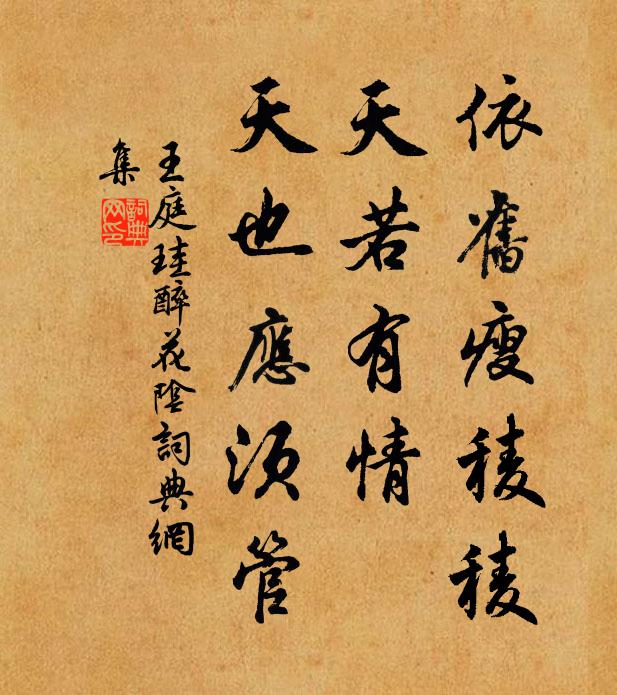 依舊瘦稜稜
天若有情
天也應須管
王庭珪醉花陰詞典網
集
詞典
网印